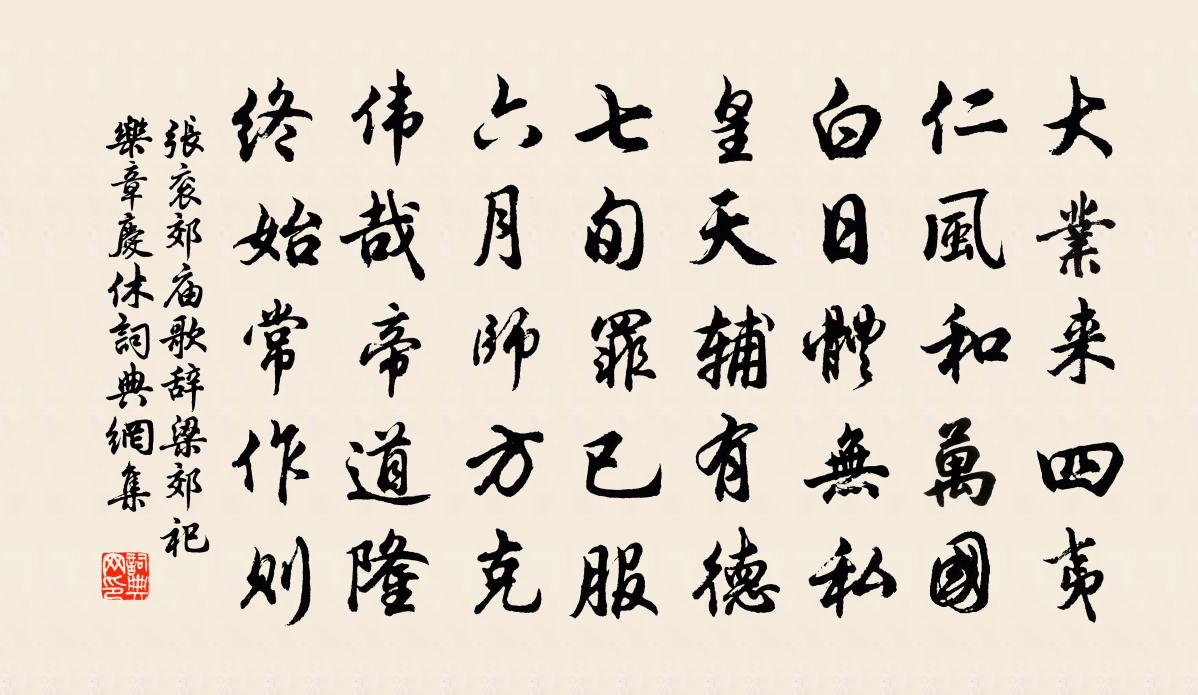 大業来四夷
仁風和萬國
白日體無私
皇天輔有德
七旬罪已服
六月師方克
伟哉帝道隆
終始常作則
張衮郊庙歌辞梁郊祀
樂章慶休詞典網集
詞典网印